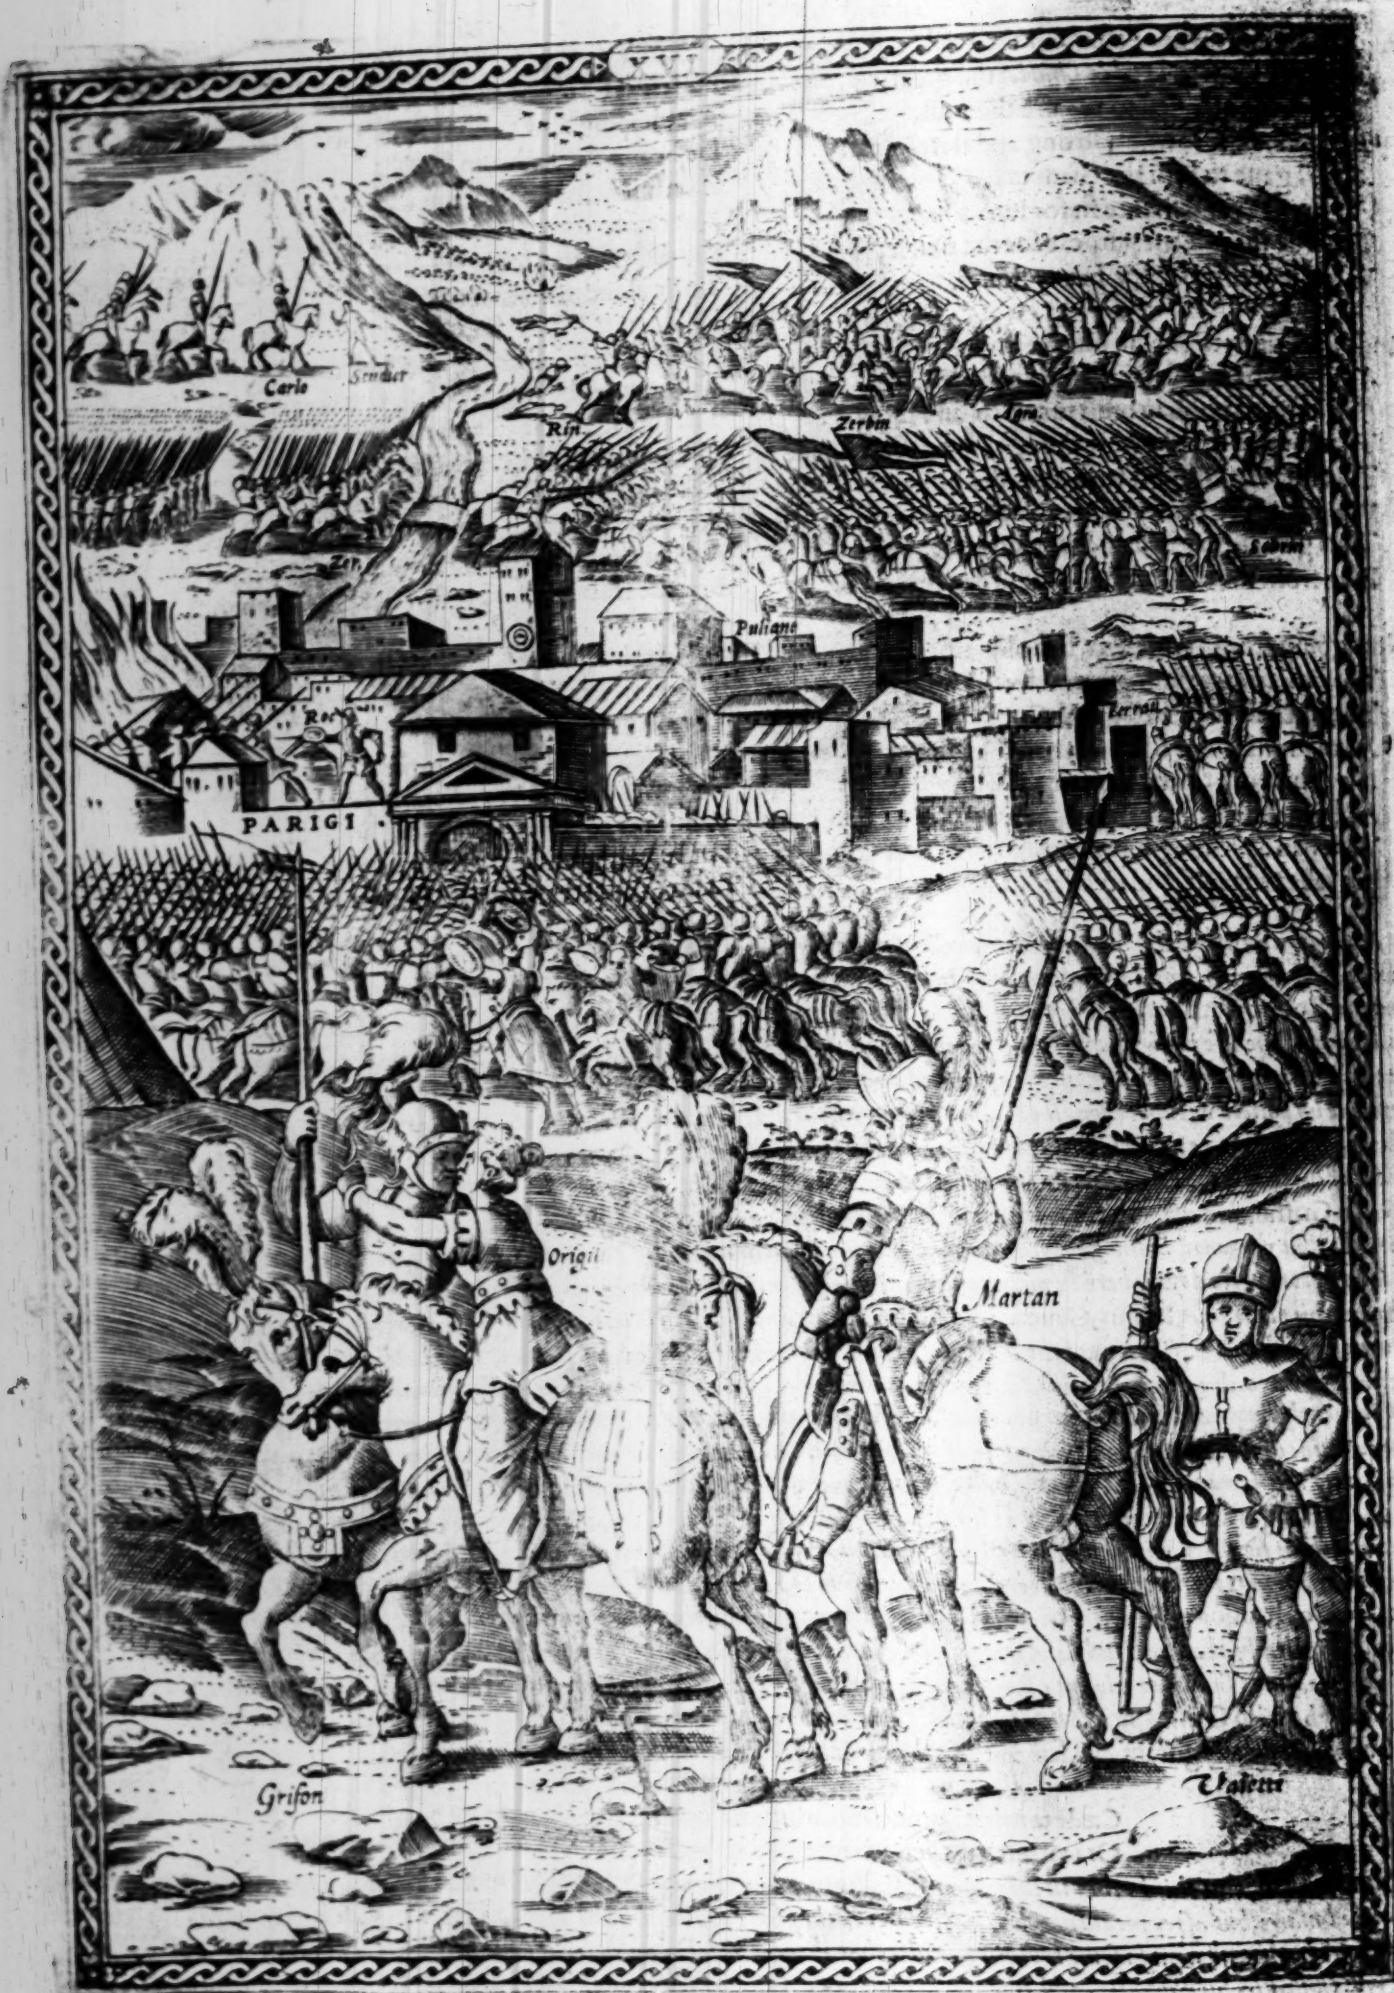 XVI
Carlo
Scudier
Rin
Zerbin
Agra.
Zer.
Puliano
Ferrau
Rod
PARIGI
Origil
Martan
Grifon
Valetti